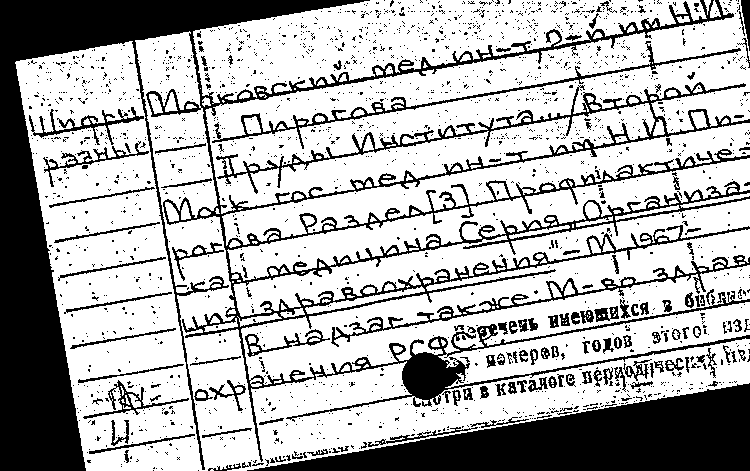 Шифры
разные
Московский мед. ин-т, 2-й, им. Н.И.
Пирогова.
Труды Института... / Второй
Моск. гос. мед. ин-т им. Н.И. Пи-
рогова. Раздел [3]. Профилактиче-
ская медицина. Серия „Организа-
ция здравоохранения". - М., 1967-
В надзаг. также: М-во здраво-
охранения РСФСР.
Перечень имеющихся в библиоте
номеров, годов этого изд
смотри в каталоге периодических изд